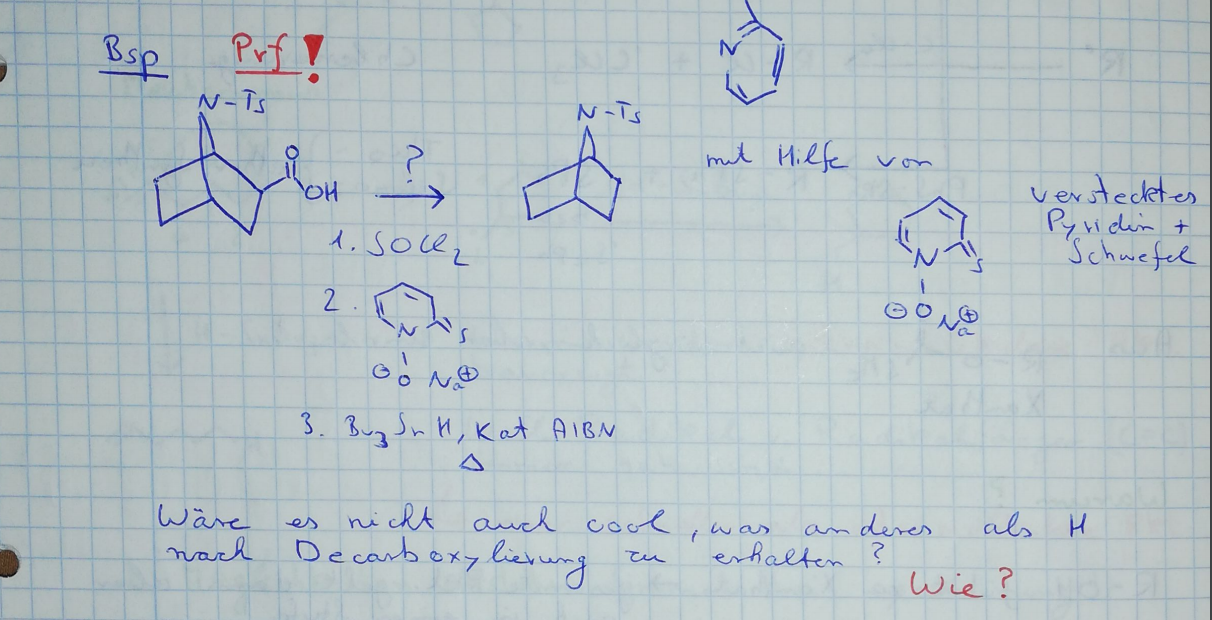 Bsp Prf!
N-Ts
O
OH
?
N-Ts
N
mit Hilfe von
verstecktes
Pyridin +
Schwefel
N S
⊖ O Na⊕
1. SOCl2
2.
N S
⊖ O Na⊕
3. Bu3SnH, Kat AIBN
Δ
Wäre es nicht auch cool, was anderes als H
nach Decarboxylierung zu erhalten?
Wie?